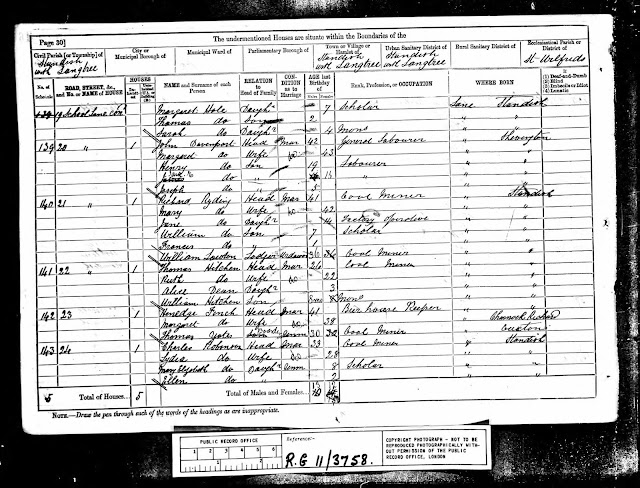 The undermentioned Houses are situate within the Boundaries of the
Page 30]
Civil Parish [or Township] of
Standish with Langtree
City or Municipal Borough of
Municipal Ward of
Parliamentary Borough of
Town or Village or Hamlet of
Standish with Langtree
Urban Sanitary District of
Standish with Langtree
Rural Sanitary District of
Ecclesiastical Parish or District of
St Wilfreds
No. of Schedule
ROAD, STREET, &c., and No. or NAME of HOUSE
HOUSES
NAME and Surname of each Person
RELATION to Head of Family
CONDITION as to Marriage
AGE last Birthday of
Males
Females
Rank, Profession, or OCCUPATION
WHERE BORN
(1) Deaf-and-Dumb
(2) Blind
(3) Imbecile or Idiot
(4) Lunatic
139 19 School Lane Margaret Hole Daugr 7 Scholar Lanc Standish
Thomas do Son 2 " "
Sarah do Daugr 4 Mons " "
139 20 " 1 John Davenport Head Mar 42 General Labourer " Shevington
Margard do Wife do 43 " "
Henry do Son 19 Labourer " "
do " 15 " "
Joseph do " 5 " "
140 21 " 1 Richard Ryding Head Mar 41 Coal Miner " Standish
Mary do Wife do 42 " "
Jane do Daugr 14 Factory Operative " "
William do Son 7 Scholar " "
Frances do " 1 " "
William Lawton Lodger 36 Coal Miner " "
141 22 " 1 Thomas Hitchen Head Mar 26 Coal Miner " "
Ruth do Wife do 22 " "
Alice Dean Daugr 3 " "
William Hitchen Son Mons " "
142 23 1 Head Mar 41 Beer house Keeper Charnock Richard
Margaret do Wife do " Euxton
Thomas Yates Unm 30 Coal Miner " Standish
143 24 1 Charles Robinson Head Mar 23 Coal Miner " "
Lydia do Wife do 28 " "
Mary Elizabeth do Daugr Unm 8 Scholar " "
Ellen do " 2 " "
5 Total of Houses 5 Total of Males and Females
NOTE.—Draw the pen through such of the words of the headings as are inappropriate.
PUBLIC RECORD OFFICE
1 2 3 4 5 6
1 2
Reference:-
R.G 11/3758.
COPYRIGHT PHOTOGRAPH - NOT TO BE REPRODUCED PHOTOGRAPHICALLY WITHOUT PERMISSION OF THE PUBLIC RECORD OFFICE, LONDON